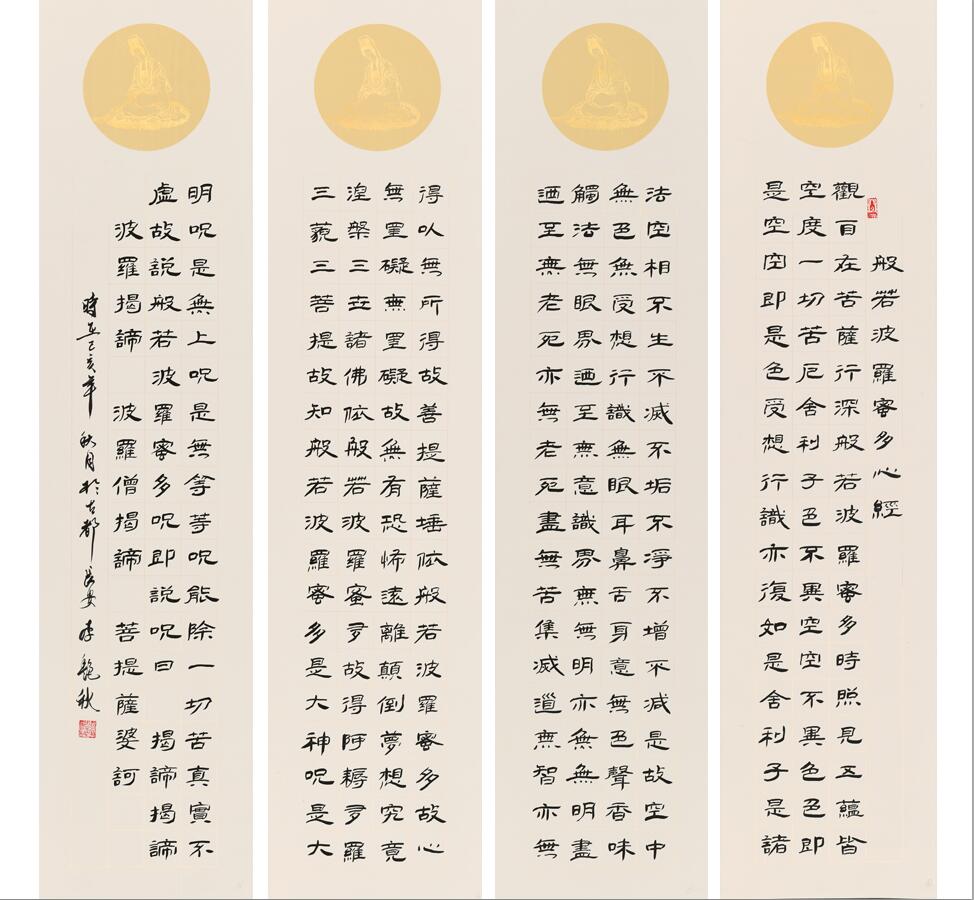 般若波羅蜜多心經
觀自在菩薩行深般若波羅蜜多時照見五蘊皆
空度一切苦厄舍利子色不異空空不異色色即
是空空即是色受想行識亦復如是舍利子是諸
法空相不生不滅不垢不淨不增不減是故空中
無色無受想行識無眼耳鼻舌身意無色聲香味
觸法無眼界迺至無意識界無無明亦無無明盡
迺至無老死亦無老死盡無苦集滅道無智亦無
得以無所得故菩提薩埵依般若波羅蜜多故心
無罣礙無罣礙故無有恐怖遠離顛倒夢想究竟
涅槃三世諸佛依般若波羅蜜多故得阿耨多羅
三藐三菩提故知般若波羅蜜多是大神呪是大
明呪是無上呪是無等等呪能除一切苦真實不
虛故說般若波羅蜜多呪即說呪曰 揭諦揭諦
波羅揭諦 波羅僧揭諦 菩提薩婆訶
時在己亥年秋月於古都長安李艷秋